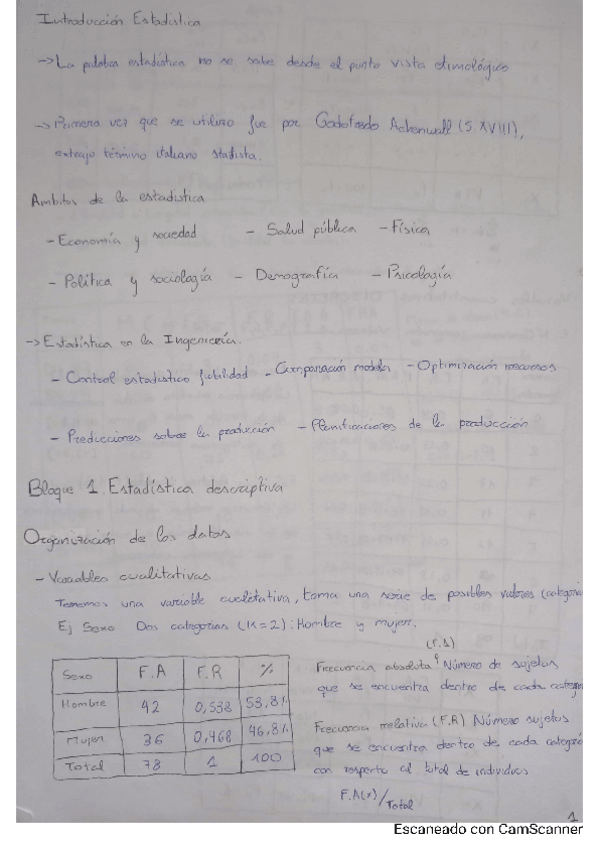 Introducción Estadística
-> La palabra estadística no se sabe desde el punto vista etimológico
-> Primera vez que se utilizo fue por Godofredo Achenwall (S XVIII),
extrajo término italiano statista.
Ambitos de la estadistica
- Economía y sociedad - Salud pública - Física
- Política y sociología - Demografía - Psicología
-> Estadística en la Ingeniería.
- Control estadistico fiabilidad - Comparación modelos - Optimización recursos
- Predicciones sobre la producción - Planificaciones de la producción
Bloque 1. Estadística descriptiva
Organización de los datos
- Variables cualitativas
Tenemos una variable cualitativa, toma una serie de posibles valores (categoría
Ej Sexo Dos categorías (K=2): Hombre y mujer.
Sexo F.A F.R %
Hombre 42 0,538 53,8%
Mujer 36 0,468 46,8%
Total 78 1 100
Frecuencia absoluta Número de sujetos
que se encuentra dentro de cada categor
Frecuencia relativa (F.R) Número sujetos
que se encuentra dentro de cada categorí
con respecto al total de individuos
F.A(x)/Total
1
Escaneado con CamScanner